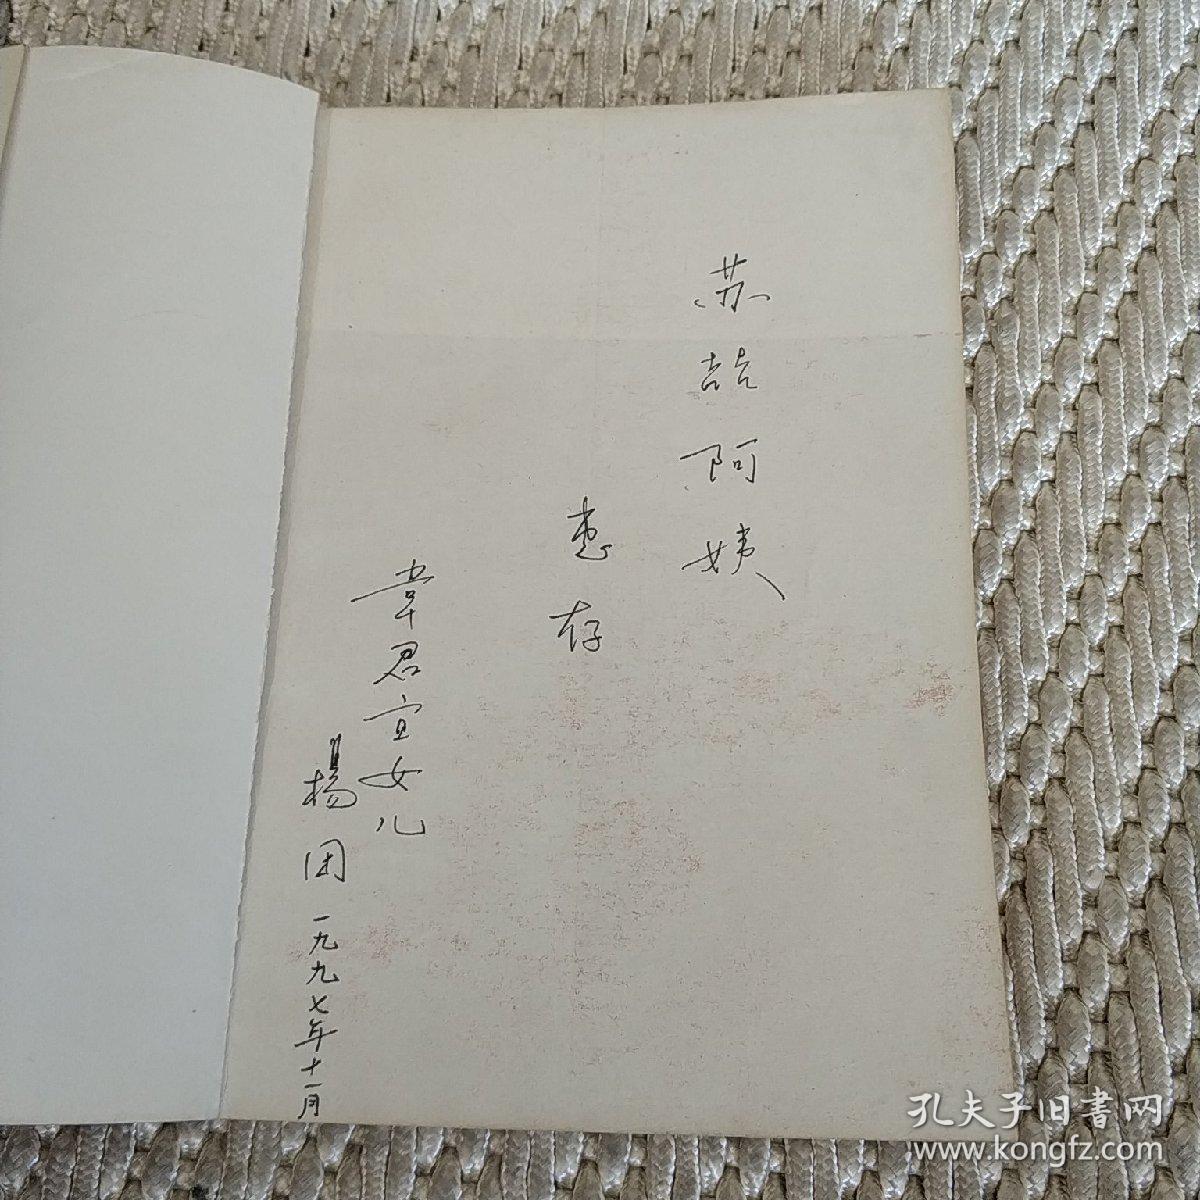 苏喆阿姨
惠存
韋君宜女儿
楊团
一九九七年十一月
孔夫子旧書网
www.kongfz.com